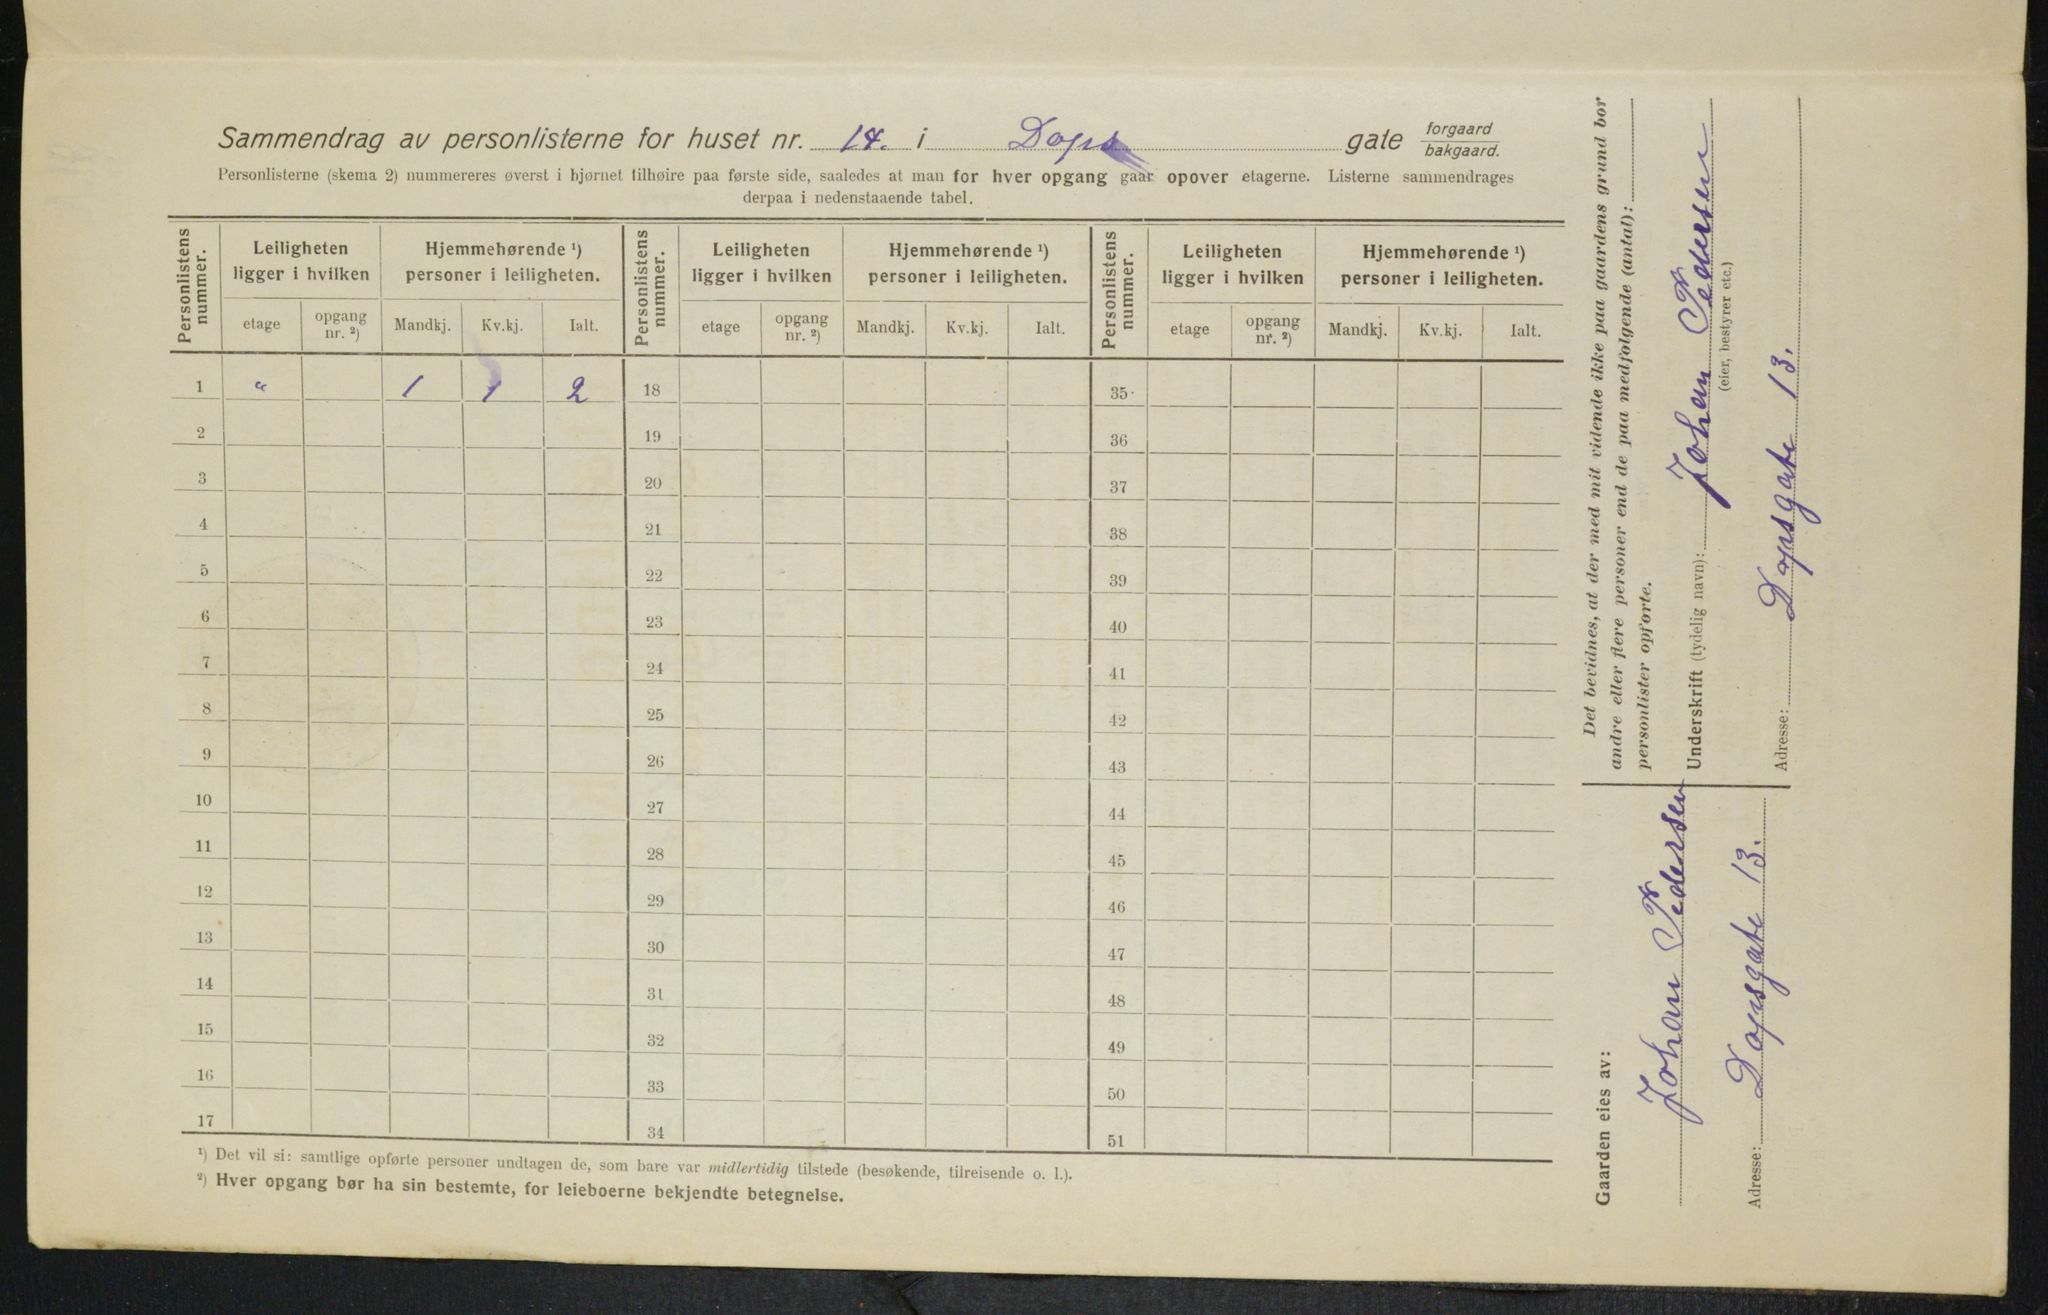 Sammendrag av personlisterne for huset nr. 14. i Dops gate forgaard bakgaard.
Personlisterne (skema 2) nummereres øverst i hjørnet tilhøire paa første side, saaledes at man for hver opgang gaar opover etagerne. Listerne sammendrages
derpaa i nedenstaaende tabel.
Personlistens nummer. Leiligheten ligger i hvilken Hjemmehørende ¹) personer i leiligheten. Personlistens nummer. Leiligheten ligger i hvilken Hjemmehørende ¹) personer i leiligheten. Personlistens nummer. Leiligheten ligger i hvilken Hjemmehørende ¹) personer i leiligheten.
etage opgang nr. ²) Mandkj. Kv.kj. Ialt. etage opgang nr. ²) Mandkj. Kv.kj. Ialt. etage opgang nr. ²) Mandkj. Kv.kj. Ialt.
1 " 1 1 2 18 35
2 19 36
3 20 37
4 21 38
5 22 39
6 23 40
7 24 41
8 25 42
9 26 43
10 27 44
11 28 45
12 29 46
13 30 47
14 31 48
15 32 49
16 33 50
17 34 51
¹) Det vil si: samtlige opførte personer undtagen de, som bare var midlertidig tilstede (besøkende, tilreisende o. l.).
²) Hver opgang bør ha sin bestemte, for leieboerne bekjendte betegnelse.
Det bevidnes, at der med mit vidende ikke paa gaardens grund bor
andre eller flere personer end de paa medfølgende (antal):
personlister opførte.
Underskrift (tydelig navn): Johan Pedersen
(eier, bestyrer etc.)
Adresse: Dopsgate 13.
Gaarden eies av:
Johan Pedersen
Adresse: Dopsgate 13.